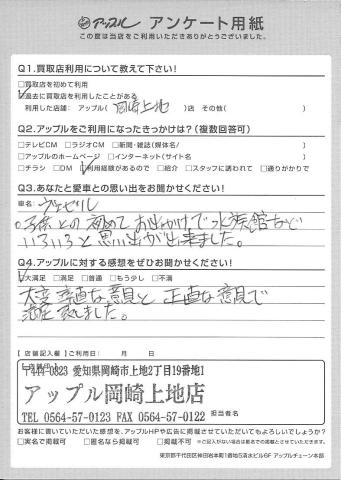 アップル アンケート用紙
この度は当店をご利用いただきありがとうございました。
Q1.買取店利用について教えて下さい!
□買取店を初めて利用
□過去に買取店を利用したことがある
利用した店舗: アップル( 岡崎上地 )店 その他( )
Q2.アップルをご利用になったきっかけは?(複数回答可)
□テレビCM □ラジオCM □新聞・雑誌(媒体名/ )
□アップルのホームページ □インターネット(サイト名 )
□チラシ □DM □利用経験があるので □紹介 □スタッフに誘われて □通りがかりで
Q3.あなたと愛車との思い出をお聞かせください!
車名: ヴェゼル
。子供との初めてお出かけで水族館など
いろいろと思い出が出来ました。
Q4.アップルに対する感想をぜひお聞かせください!
□大満足 □満足 □普通 □もう少し □不満
大変率直な意見と正直な意見で
満足致しました。
【店舗記入欄】ご利用日: 月 日
〒444-0823 愛知県岡崎市上地2丁目19番地1
アップル岡崎上地店
TEL 0564-57-0123 FAX 0564-57-0122
担当者名
お客様に書いていただいた感想を、アップルHPや広告に掲載させていただいてもよろしいでしょうか?
□実名で掲載可 □匿名なら掲載可 □掲載不可 ※ご記入がない場合は匿名での掲載とさせていただきます。
東京都千代田区神田岩本町1番地5清水ビル6F アップルチェーン本部